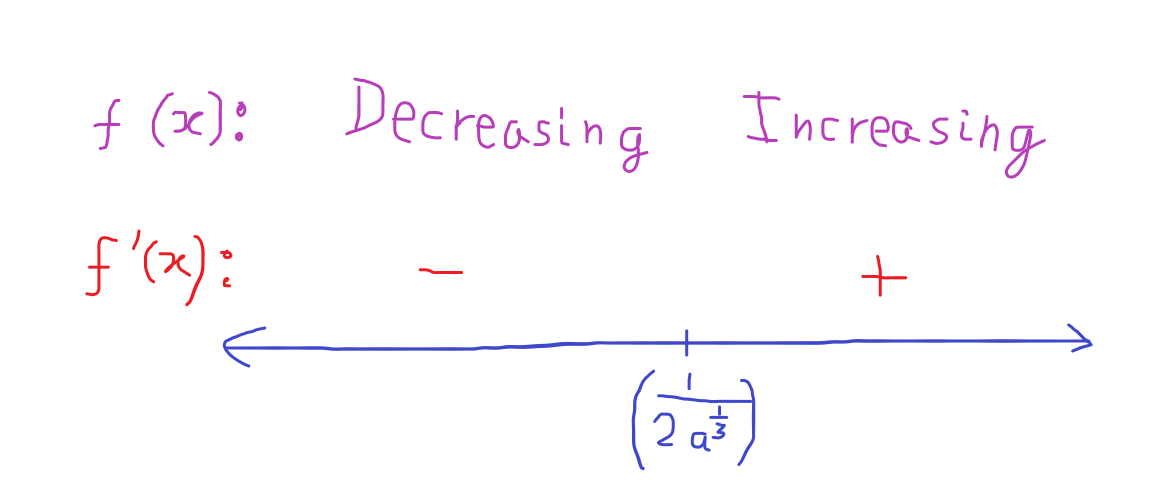 f(x): Decreasing Increasing
f'(x): − +
(1/(2a^(1/3)))